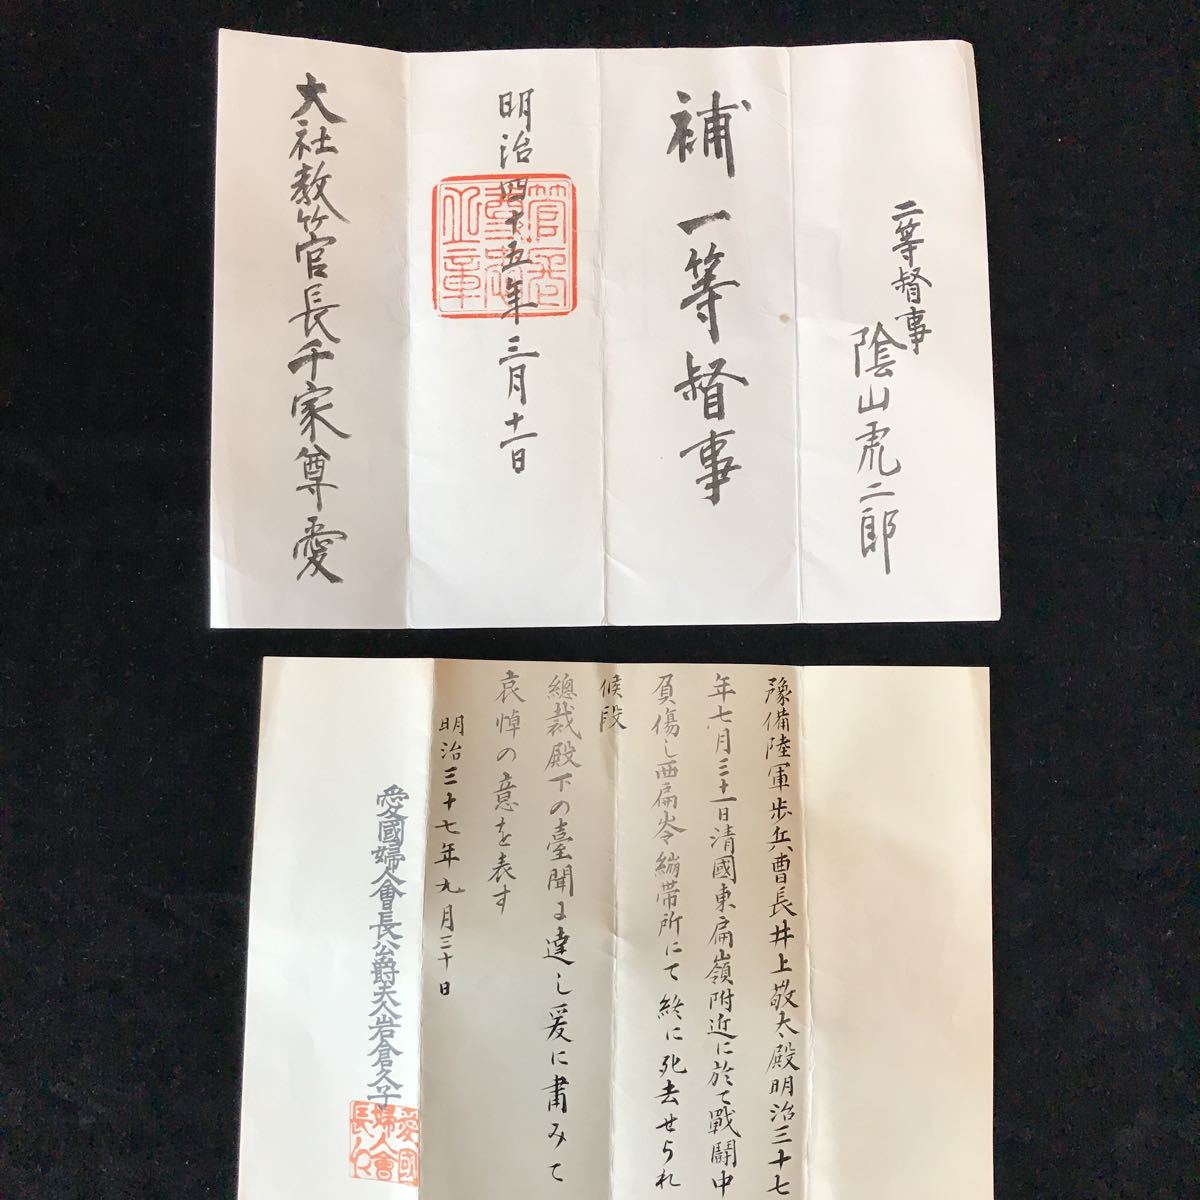 二等督事
陰山虎二郎
補一等督事
明治四十五年三月十一日
大社教管長千家尊愛
豫備陸軍歩兵曹長井上敬太殿明治三十七
年七月三十一日清國東扁嶺附近に於て戰鬪中
負傷し西扁岺繃帯所にて終に死去せられ
候段
總裁殿下の臺聞に達し爰に肅みて
哀悼の意を表す
明治三十七年九月三十日
愛國婦人會長公爵夫人岩倉久子
愛國
婦人會
長之印